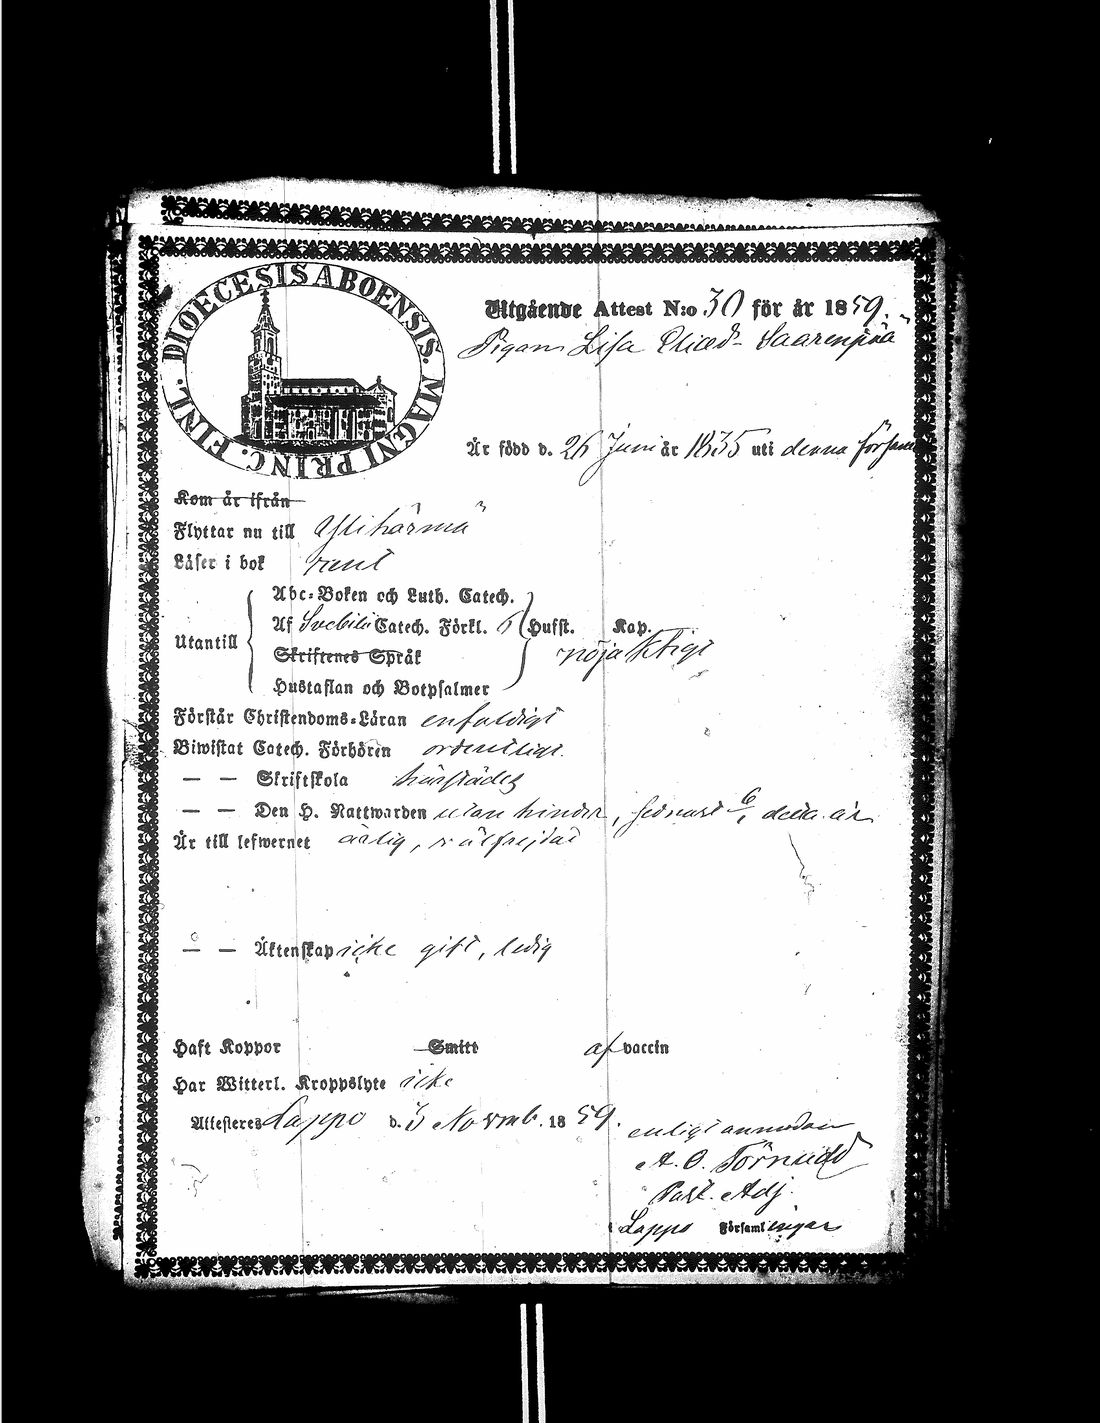 DIOECESIS ABOENSIS. MAGNI PRINC. FINL.
Utgående Attest N:o 30 för år 1859.
Pigan Lisa Saarenpää
Är född d. 26 Juni år 1835 uti denna församl
Kom år ifrån
Flyttar nu till Ylihärmä
Läser i bok rent
Abc-Boken och Luth. Catech.
Utantill Af Svebilii Catech. Förkl. 6 Hufst. Kap.
Skriftenes Språk nöjaktigt
Hustaflan och Botpsalmer
Förstår Christendoms-Läran enfaldigt
Biwistat Catech. Förhören ordentligt.
— — Skriftskola härstädes
— — Den H. Nattwarden utan hinder, sednast detta år
Är till lefwernet ärlig, välfrejdad
— — Äktenskap icke gift, ledig
Haft Koppor Smitt af vaccin
Har Witterl. Kroppslyte icke
Attesteras Lappo d. 3 Novemb. 1859.
enligt anmodan
A. O. Törnudd
Past. Adj.
Lappo Församlingar